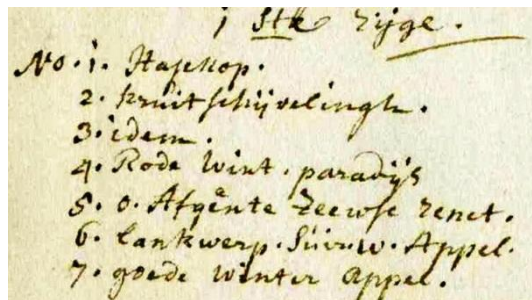 j Stk Rijge.
No. 1. Haskop.
2. Kruitschijvelingh.
3. idem.
4. Rode Wint. paradijs
5. o. Afgente Zeewse Renet.
6. Lankwerp. Suir. W. Appel.
7. goede Winter appel.